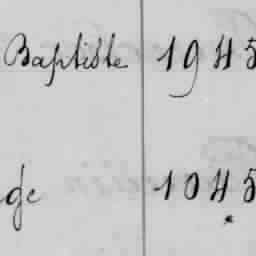 Baptiste 1945
ge 1045